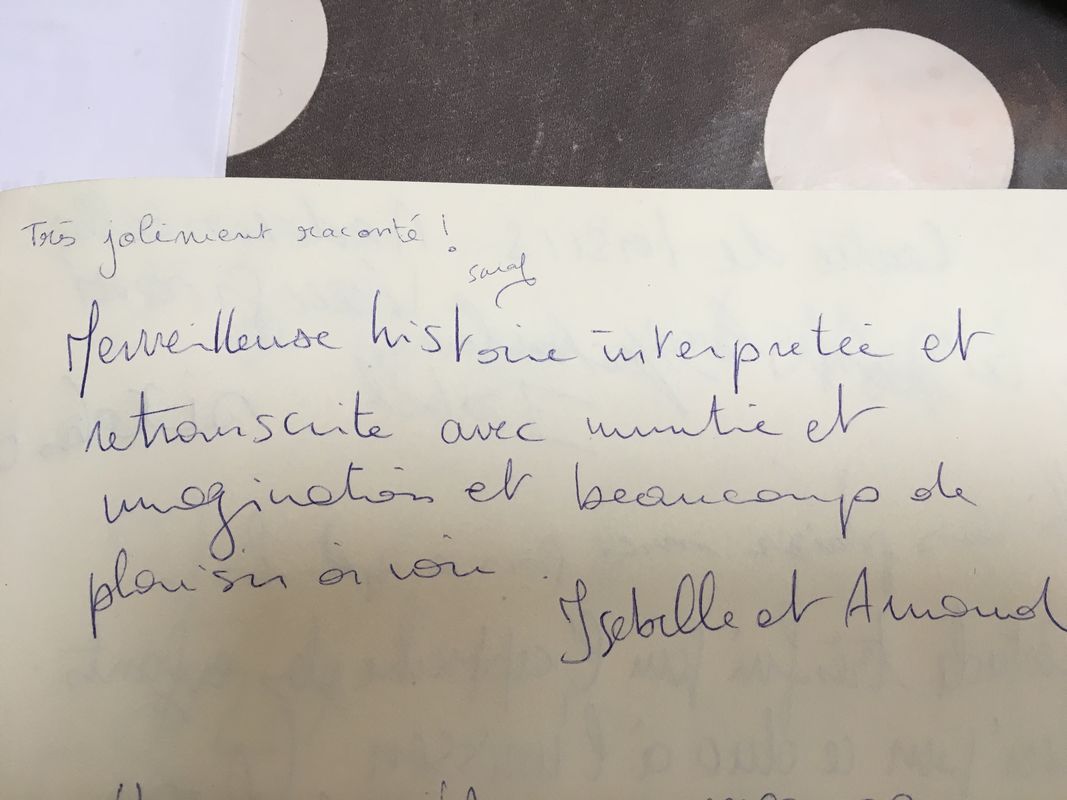 Très joliment raconté !
Sarah
Merveilleuse histoire interpretée et
retranscrite avec minutie et
imagination et beaucoup de
plaisir à voir.
Isabelle et Arnaud